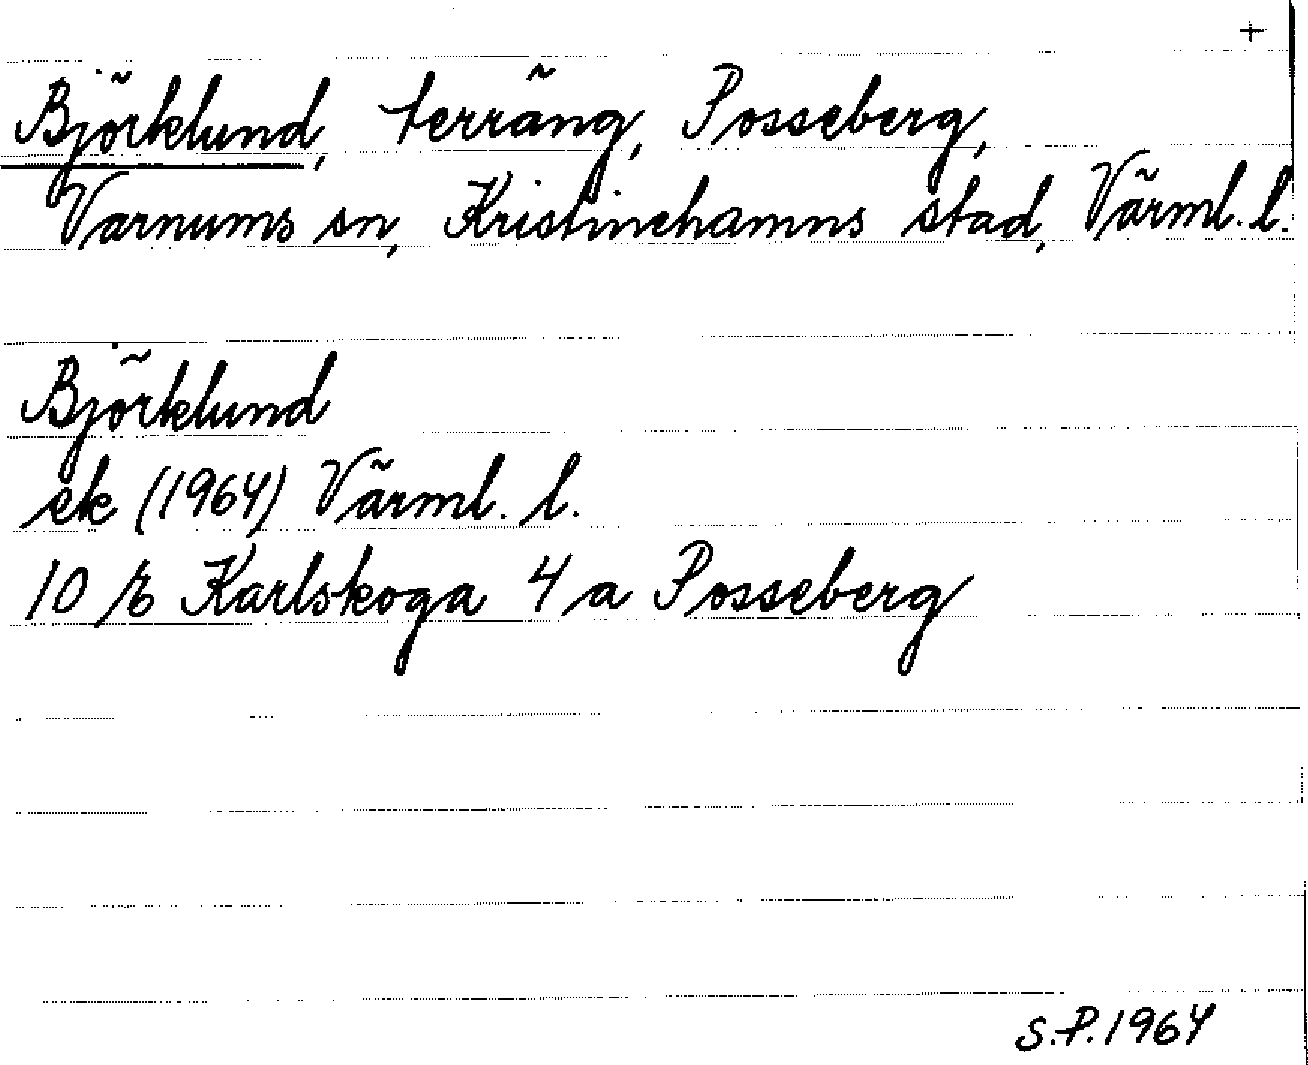 +
Björklund, terräng, Posseberg,
Varnums sn, Kristinehamns stad, Värml. l.
Björklund
ek (1964) Värml. l.
10 E Karlskoga 4 a Posseberg
S.P. 1964